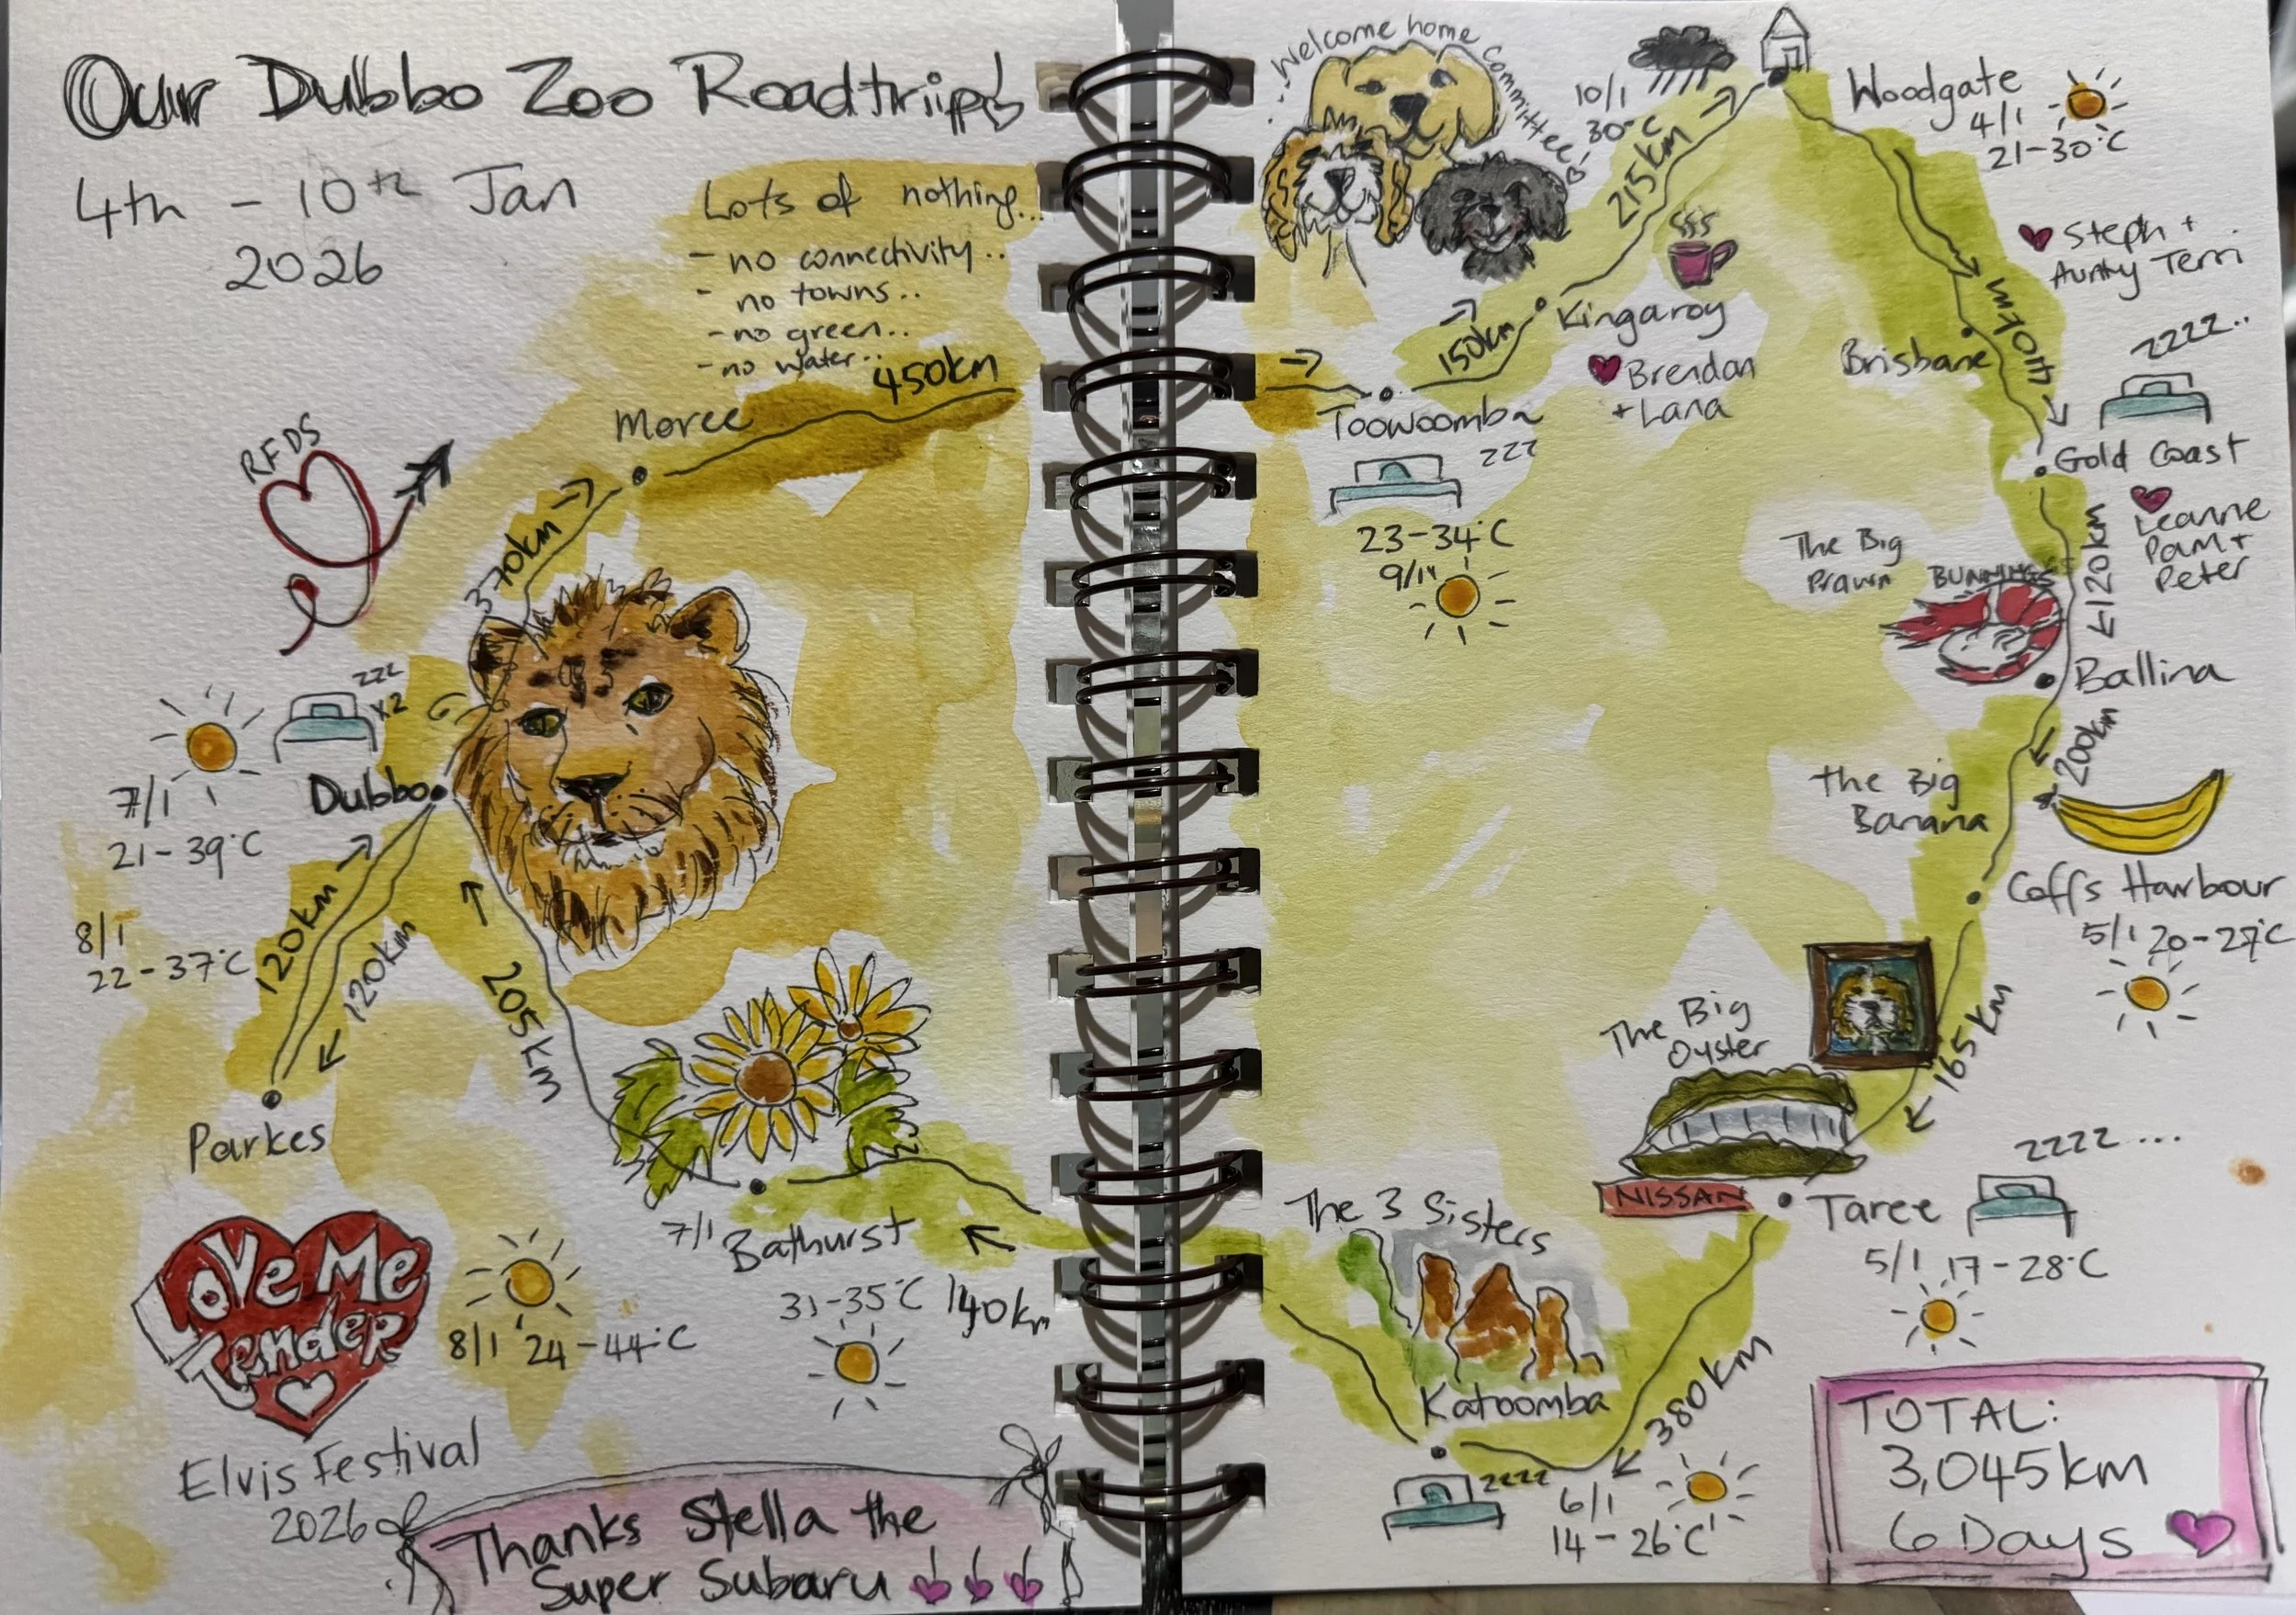 Our Dubbo Zoo Roadtrip
4th - 10th Jan
2026
Lots of nothing...
- no connectivity..
- no towns..
- no green..
- no water..
450km
Moree
RFDS
370km
zzz
x2
Dubbo
7/1
21-39°C
8/1
22-37°C
120km
120km
205km
Parkes
Love Me
Tender
8/1 24-44°C
Elvis Festival
2026
7/1 Bathurst
31-35°C
140km
Thanks Stella the
Super Subaru
Welcome home Committee
10/1
30°C
215km
Woodgate
4/1
21-30°C
Steph +
Aunty Terri
Kingaroy
150km
Brendan
+ Lana
Toowoomba
zzz
23-34°C
Brisbane
440km
zzzz..
Gold Coast
Leanne
Pam +
Peter
120km
The Big
Prawn
BUNNINGS
Ballina
200km
The Big
Banana
Coffs Harbour
5/1 20-27°C
165km
The Big
Oyster
NISSAN
Taree
zzzz...
5/1 17-28°C
The 3 Sisters
Katoomba
380km
zzzz
6/1
14-26°C
TOTAL:
3,045km
6 Days